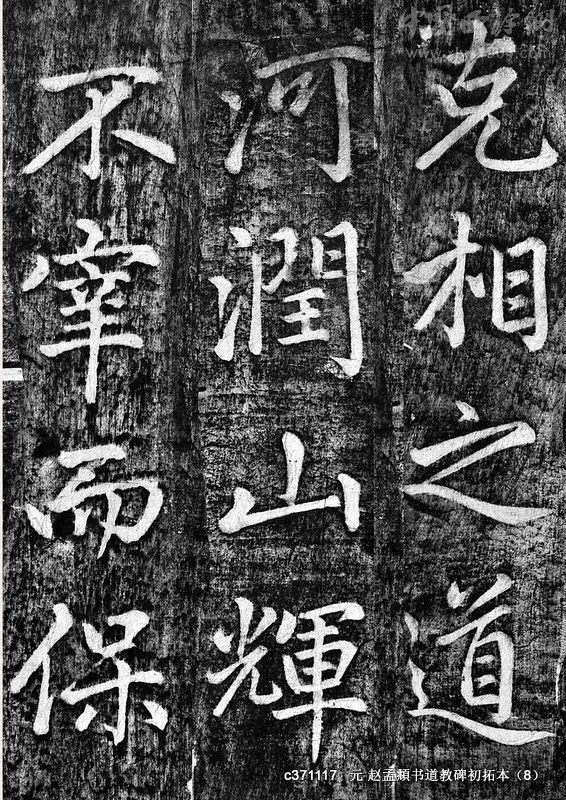 克相之道
河潤山輝
不宰而保
c371117 元 赵孟頫书道教碑初拓本（8）